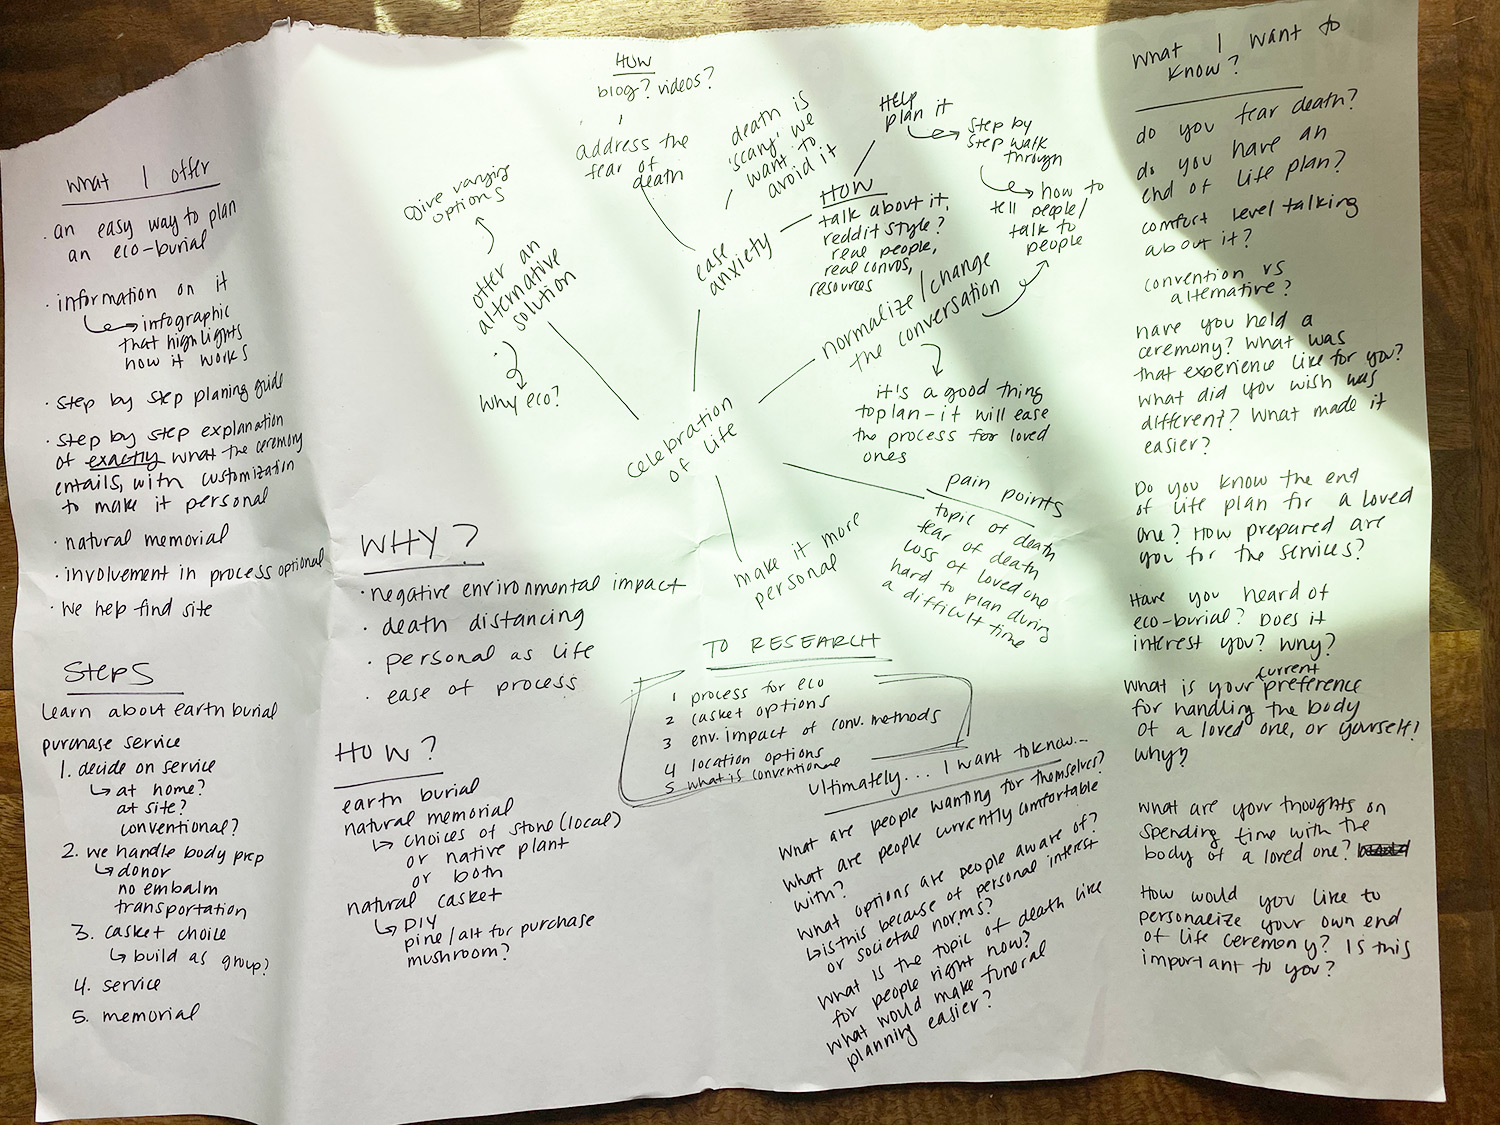 What I offer
· an easy way to plan
an eco-burial
· information on it
↳ infographic
that highlights
how it works
· step by step planing guide
· step by step explanation
of exactly what the ceremony
entails, with customization
to make it personal
· natural memorial
· involvement in process optional
· we help find site
Steps
learn about earth burial
purchase service
1. decide on service
↳ at home?
at site?
conventional?
2. we handle body prep
↳ donor
no embalm
transportation
3. casket choice
↳ build as group?
4. service
5. memorial
Give varying
options
offer an
alternative
solution
Why eco?
HOW
blog? videos?
address the
fear of
death
death is
'scary' we
want to
avoid it
ease
anxiety
HOW
talk about it,
reddit style?
real people,
real convos,
resources
HELP
plan it
step by
step walk
through
how to
tell people/
talk to
people
normalize/change
the conversation
it's a good thing
to plan - it will ease
the process for loved
ones
celebration
of life
pain points
topic of death
fear of death
loss of loved one
hard to plan during
a difficult time
make it more
personal
WHY?
· negative environmental impact
· death distancing
· personal as life
· ease of process
HOW?
earth burial
natural memorial
↳ choices of stone (local)
or native plant
or both
natural casket
↳ DIY
pine/alt for purchase
mushroom?
TO RESEARCH
1 process for eco
2 casket options
3 env. impact of conv. methods
4 location options
5 what is conventional
Ultimately... I want to know...
What are people wanting for themselves?
What are people currently comfortable
with?
What options are people aware of?
↳ is this because of personal interest
or societal norms?
What is the topic of death like
for people right now?
What would make funeral
planning easier?
What I want to
know?
do you fear death?
do you have an
end of life plan?
comfort level talking
about it?
convention vs
alternative?
Have you held a
ceremony? What was
that experience like for you?
What did you wish was
different? What made it
easier?
Do you know the end
of life plan for a loved
one? How prepared are
you for the services?
Have you heard of
eco-burial? Does it
interest you? Why?
What is your current preference
for handling the body
of a loved one, or yourself?
why?
What are your thoughts on
spending time with the
body of a loved one?
How would you like to
personalize your own end
of life ceremony? Is this
important to you?